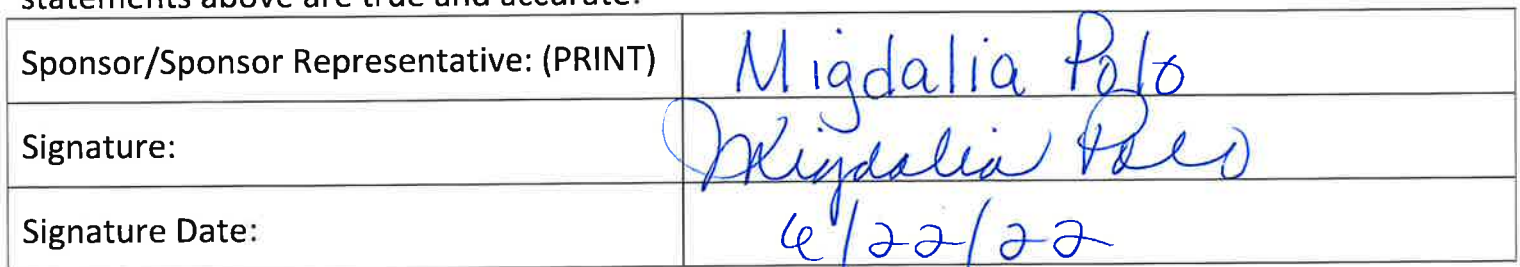 statements above are true and accurate.
Sponsor/Sponsor Representative: (PRINT) Migdalia Polo
Signature: Migdalia Polo
Signature Date: 6/22/22